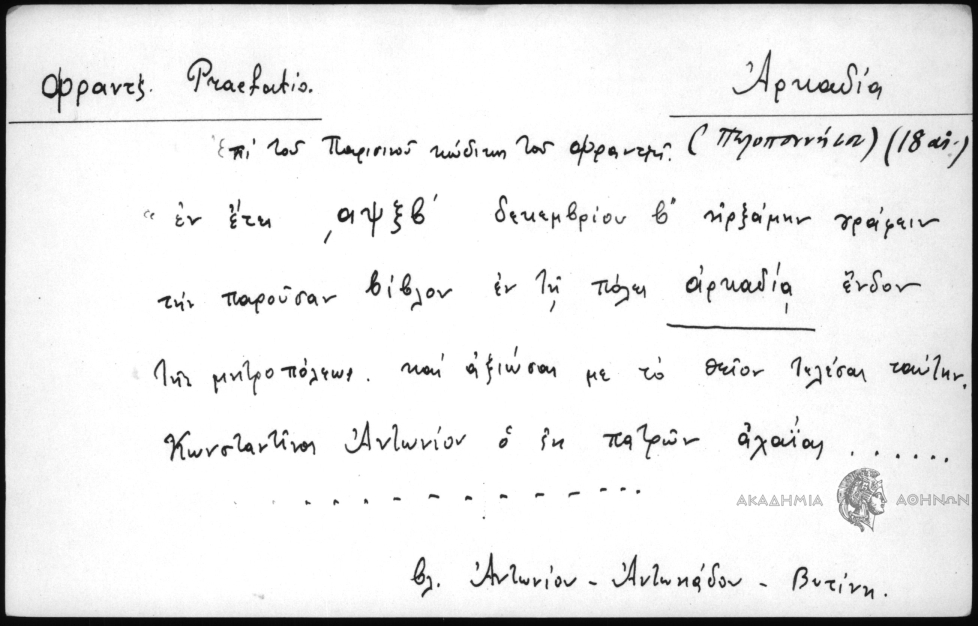 Φραντζ. Praefatio.
Ἀρκαδία
Ἐπὶ τοῦ Παρισινοῦ κώδικος τοῦ Φραντζῆ. (Πελοποννήσου) (18 αἰ.)
“ἐν ἔτει ͵αψξβ΄ δεκεμβρίου β΄ ἠρξάμην γράφειν
τὴν παροῦσαν βίβλον ἐν τῇ πόλει ἀρκαδίᾳ ἔνδον
τῆς μητροπόλεως. καὶ ἀξιώσαι με τὸ θεῖον τελέσαι ταύτην.
Κωνσταντῖνος Ἀντωνίου ὁ ἐκ πατρῶν ἀχαΐας ......
ΑΚΑΔΗΜΙΑ ΑΘΗΝΩΝ
βλ. Ἀντωνίου - Ἀντωνιάδου - Βυτίνη.